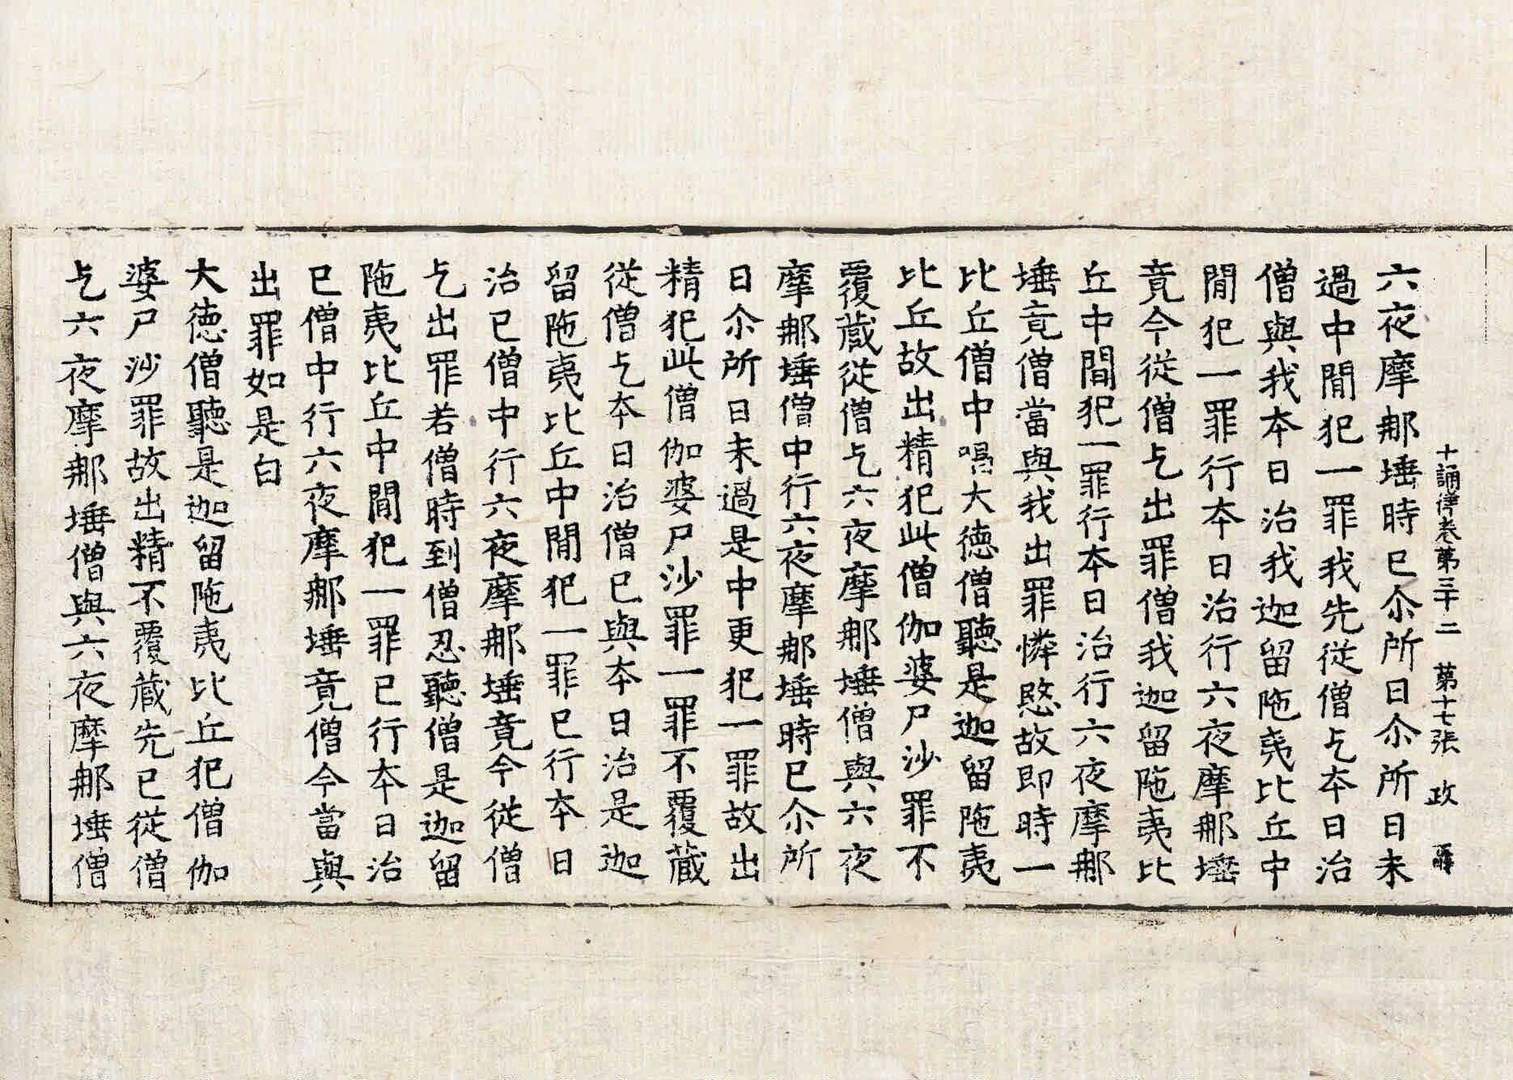 十誦律卷第三十二 第十七張 政
六夜摩那埵時已尒所日尒所日未
過中閒犯一罪我先従僧乞夲日治
僧與我夲日治我迦留陁夷比丘中
閒犯一罪行夲日治行六夜摩那埵
竟今従僧乞出罪僧我迦留陁夷比
丘中閒犯一罪行夲日治行六夜摩那
埵竟僧當與我出罪憐愍故即時一
比丘僧中唱大徳僧聽是迦留陁夷
比丘故出精犯此僧伽婆尸沙罪不
覆蔵従僧乞六夜摩那埵僧與六夜
摩那埵僧中行六夜摩那埵時已尒所
日尒所日未過是中更犯一罪故出
精犯此僧伽婆尸沙罪一罪不覆蔵
従僧乞夲日治僧已與夲日治是迦
留陁夷比丘中閒犯一罪已行夲日
治已僧中行六夜摩那埵竟今従僧
乞出罪若僧時到僧忍聽僧是迦留
陁夷比丘中閒犯一罪已行夲日治
已僧中行六夜摩那埵竟僧今當與
出罪如是白
大徳僧聽是迦留陁夷比丘犯僧伽
婆尸沙罪故出精不覆蔵先已従僧
乞六夜摩那埵僧與六夜摩那埵僧